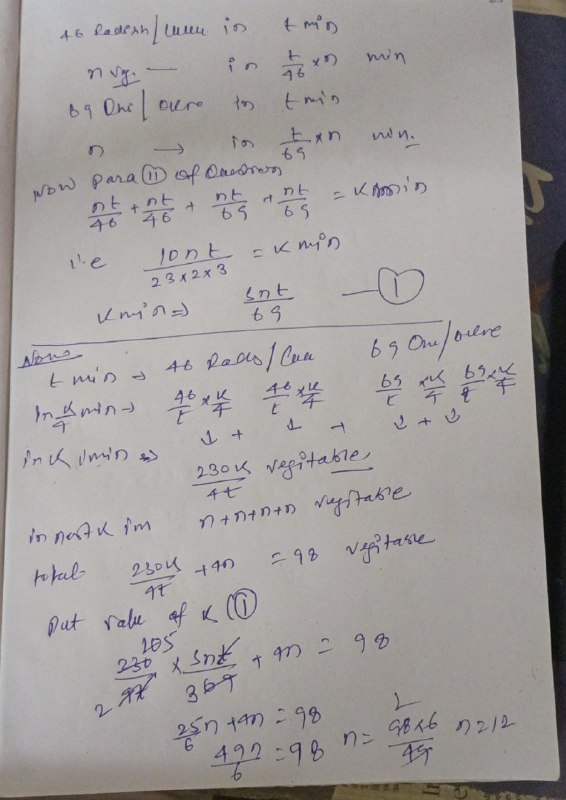 46 Radish/Cucu in t min
n veg. — in t/46 × n min
69 Oni/ olive in t min
n → in t/69 × n min.
Now para (11) of Question
nt/46 + nt/46 + nt/69 + nt/69 = K min
i.e 10nt/23×2×3 = K min
K min ⇒ 5nt/69 — (1)
Now
t min → 46 Radis/Cuu 69 Oni/olive
In K/4 min → 46/t × K/4 46/t × K/4 69/t × K/4 69/t × K/4
↓ + ↓ + ↓ + ↓
in K min ⇒ 230K/4t vegitable
in next K im n+n+n+n vegitable
total- 230K/4t + 4n = 98 vegitable
Put value of K (1)
230/4t × 5nt/69 + 4n = 98
25/6 n + 4n = 98
49n/6 = 98 n = 98×6/49 n=12